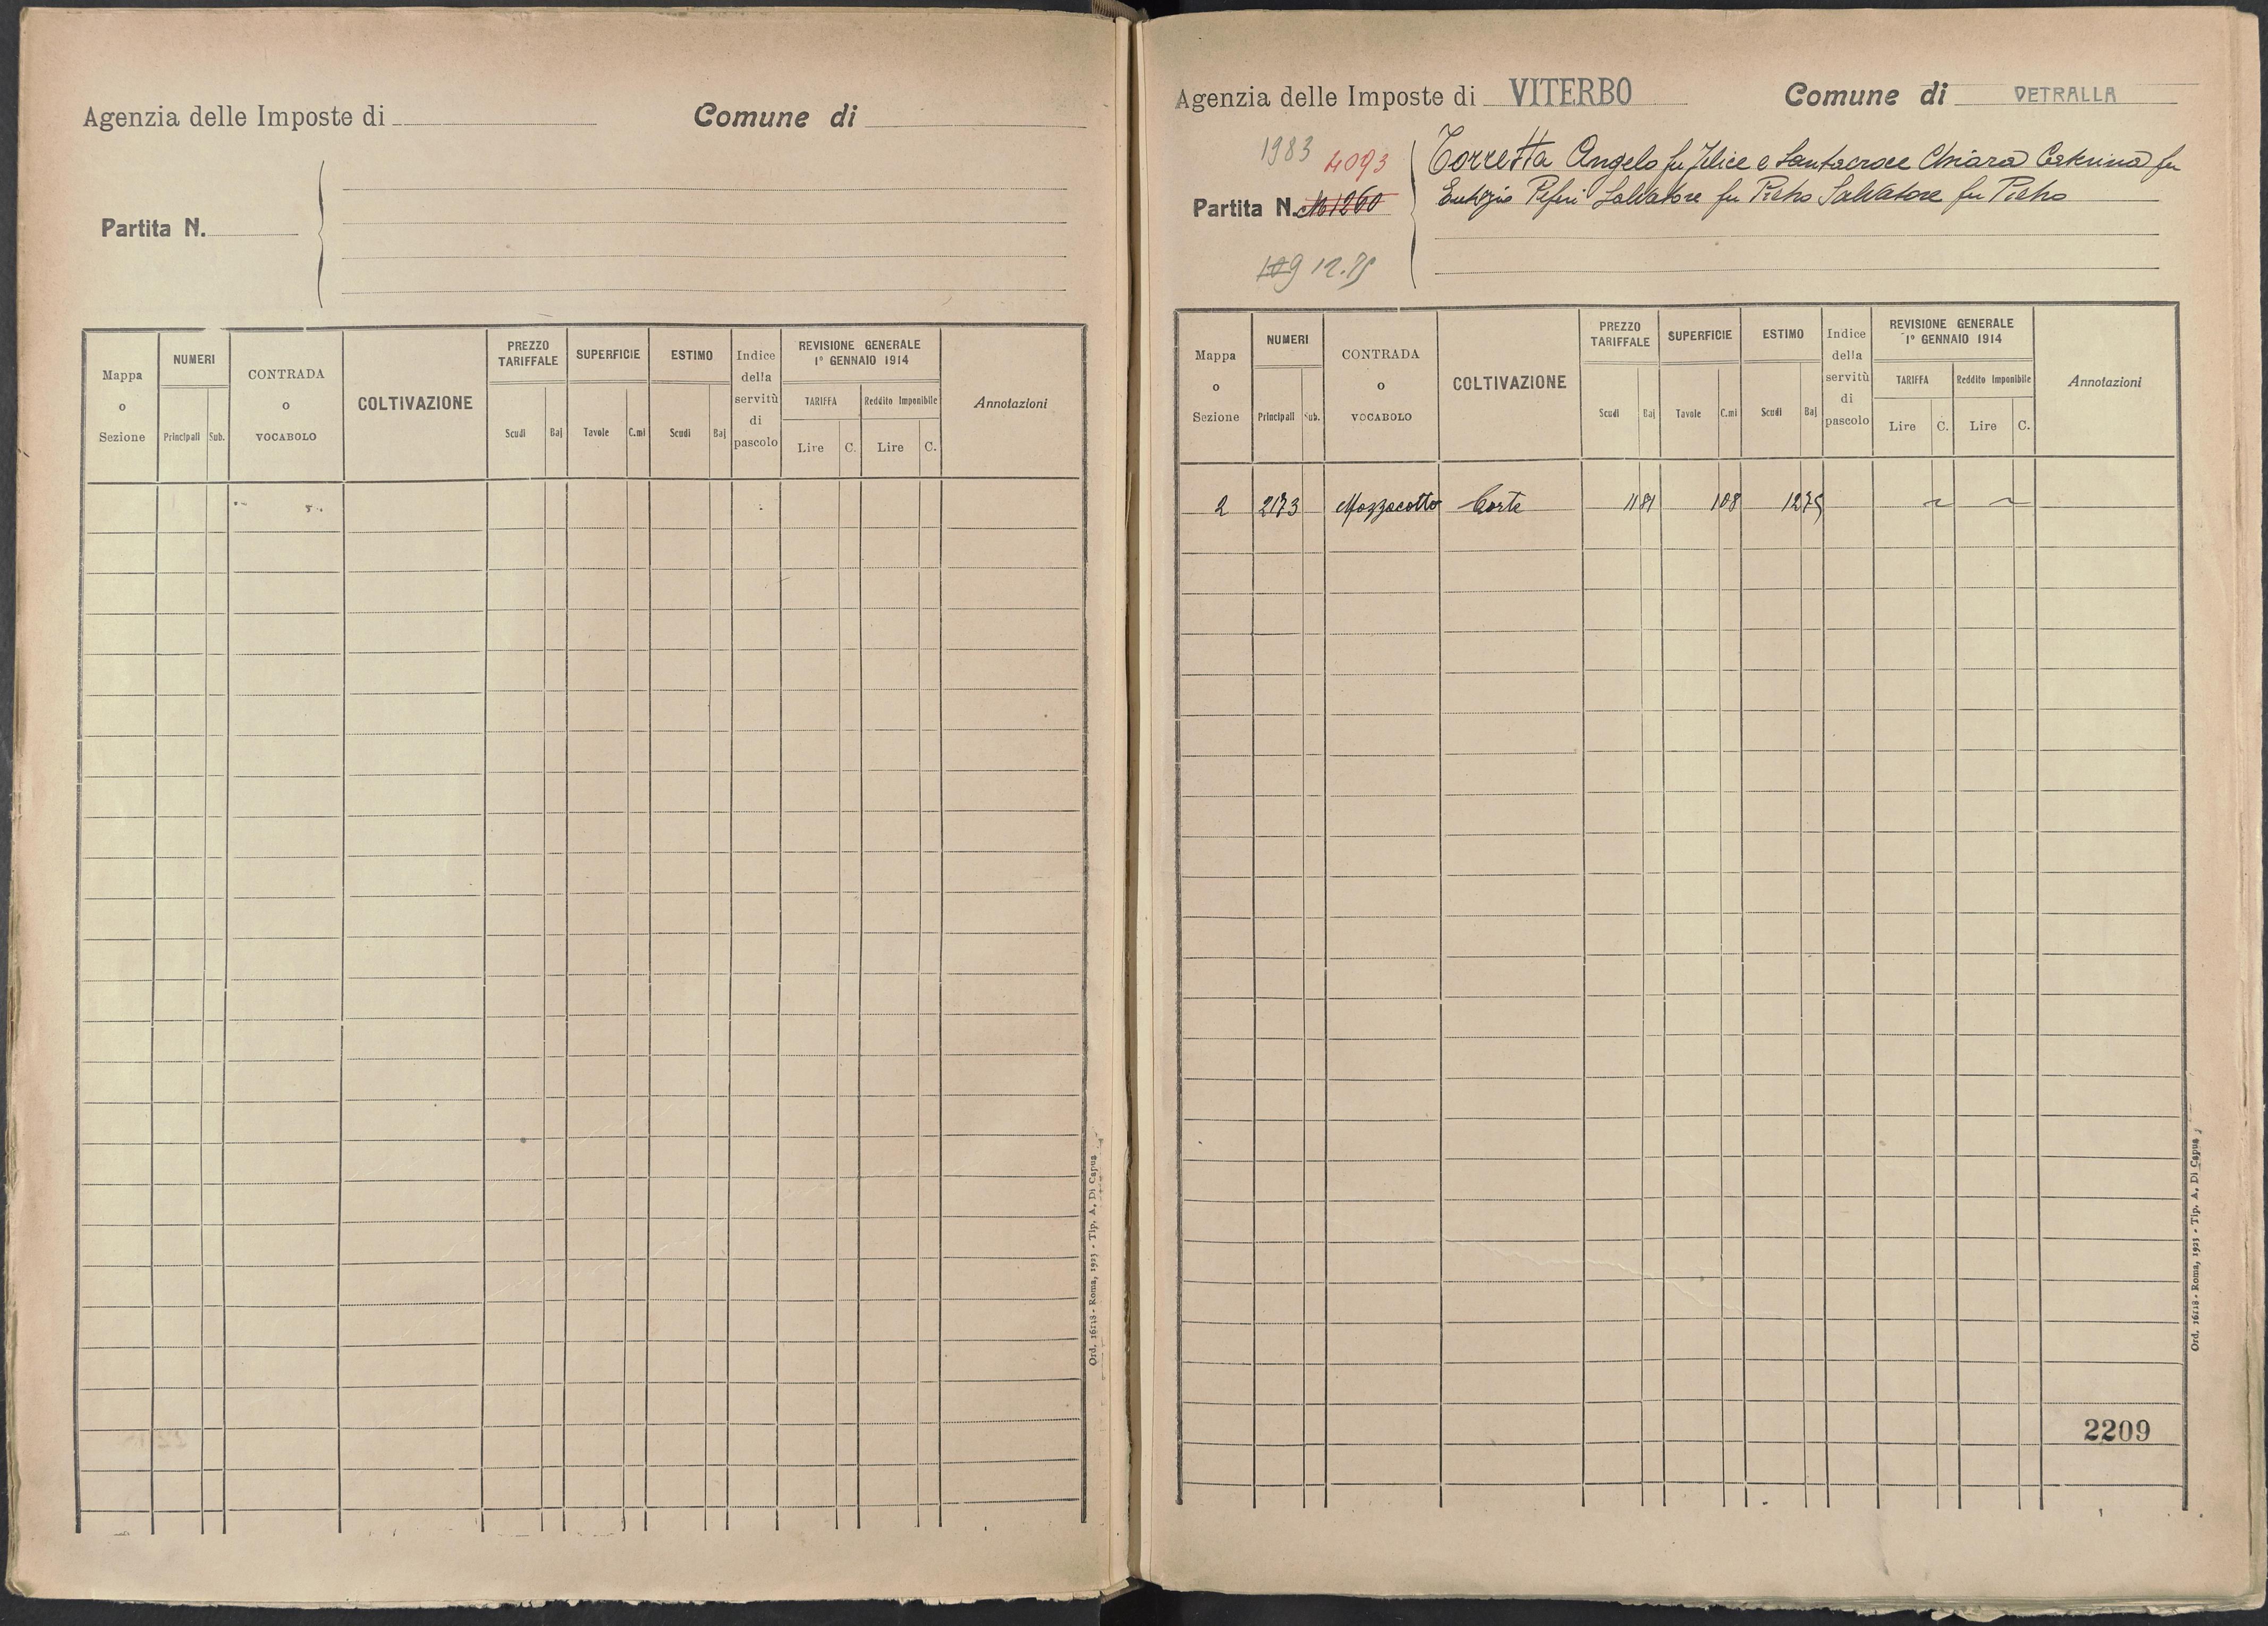 Agenzia delle Imposte di
Comune di
Partita N.
Mappa o Sezione
NUMERI
Principali Sub.
CONTRADA o VOCABOLO
COLTIVAZIONE
PREZZO TARIFFALE
Scudi Baj
SUPERFICIE
Tavole C.mi
ESTIMO
Scudi Baj
Indice della servitù di pascolo
REVISIONE GENERALE
1° GENNAIO 1914
TARIFFA
Lire C.
Reddito Imponibile
Lire C.
Annotazioni
Ord. 16118 - Roma, 1923 - Tip. A. Di Capua
Agenzia delle Imposte di VITERBO
Comune di VETRALLA
1983 4093
Partita N. 1260
109 12.75
Torretta Angelo fu Felice e Santacroce Chiara Caterina fu
Eutizio Peferi Salvatore fu Pietro Salvatore fu Pietro
Mappa o Sezione
NUMERI
Principali Sub.
CONTRADA o VOCABOLO
COLTIVAZIONE
PREZZO TARIFFALE
Scudi Baj
SUPERFICIE
Tavole C.mi
ESTIMO
Scudi Baj
Indice della servitù di pascolo
REVISIONE GENERALE
1° GENNAIO 1914
TARIFFA
Lire C.
Reddito Imponibile
Lire C.
Annotazioni
2 2173 Mazzacotto Corte 11 81 1 08 12 75
2209
Ord. 16118 - Roma, 1923 - Tip. A. Di Capua